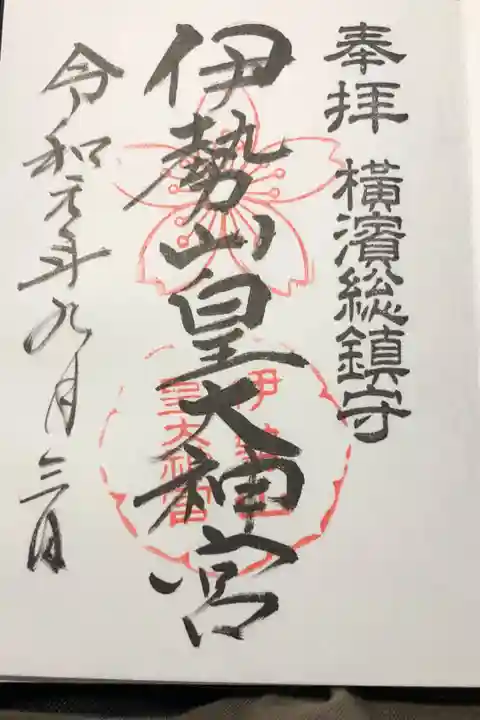 奉拝 横濱総鎮守
伊勢山皇大神宮
令和元年九月三日
伊勢山
皇大神宮